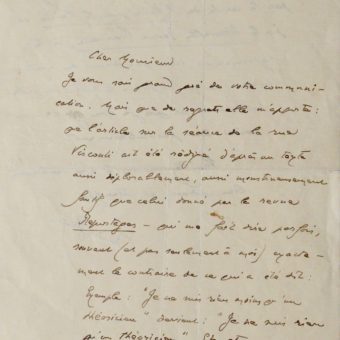 Cher Monsieur
Je vous sais grand gré de votre communi-
cation. Mais que de regrets elle m'apporte :
que l'article sur la séance de la rue
Visconti ait été rédigé d'après un texte
aussi déplorablement, aussi monstrueusement
fautif que celui donné par la revue
Reportages - qui me fait dire parfois,
souvent (et pas seulement à moi) exacte-
ment le contraire de ce qui a été dit :
Exemple : "Je ne suis rien moins qu'un
théoricien" devient : "Je ne suis rien
qu'un théoricien"